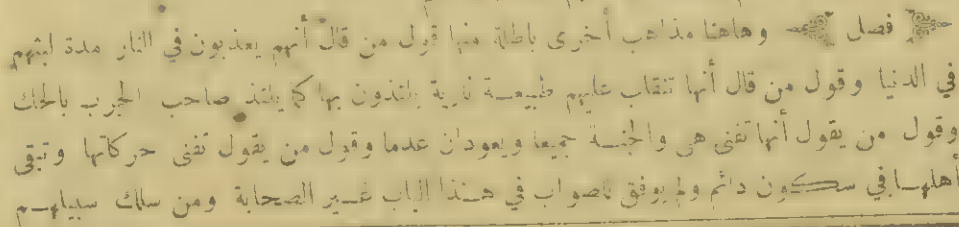 فصل وهاهنا مذاهب أخرى باطلة منها قول من قال أنهم يعذبون في النار مدة لبثهم
في الدنيا وقول من قال أنها تنقلب عليهم طبيعة نارية يلتذون بها كما يلتذ صاحب الجرب بالحك
وقول من يقول أنها تفنى هى والجنة جميعا ويعودان عدما وقول من يقول تفنى حركاتها وتبقى
أهلها في سكون دائم ولم يوفق للصواب في هذا الباب غير الصحابة ومن سلك سبيلهم